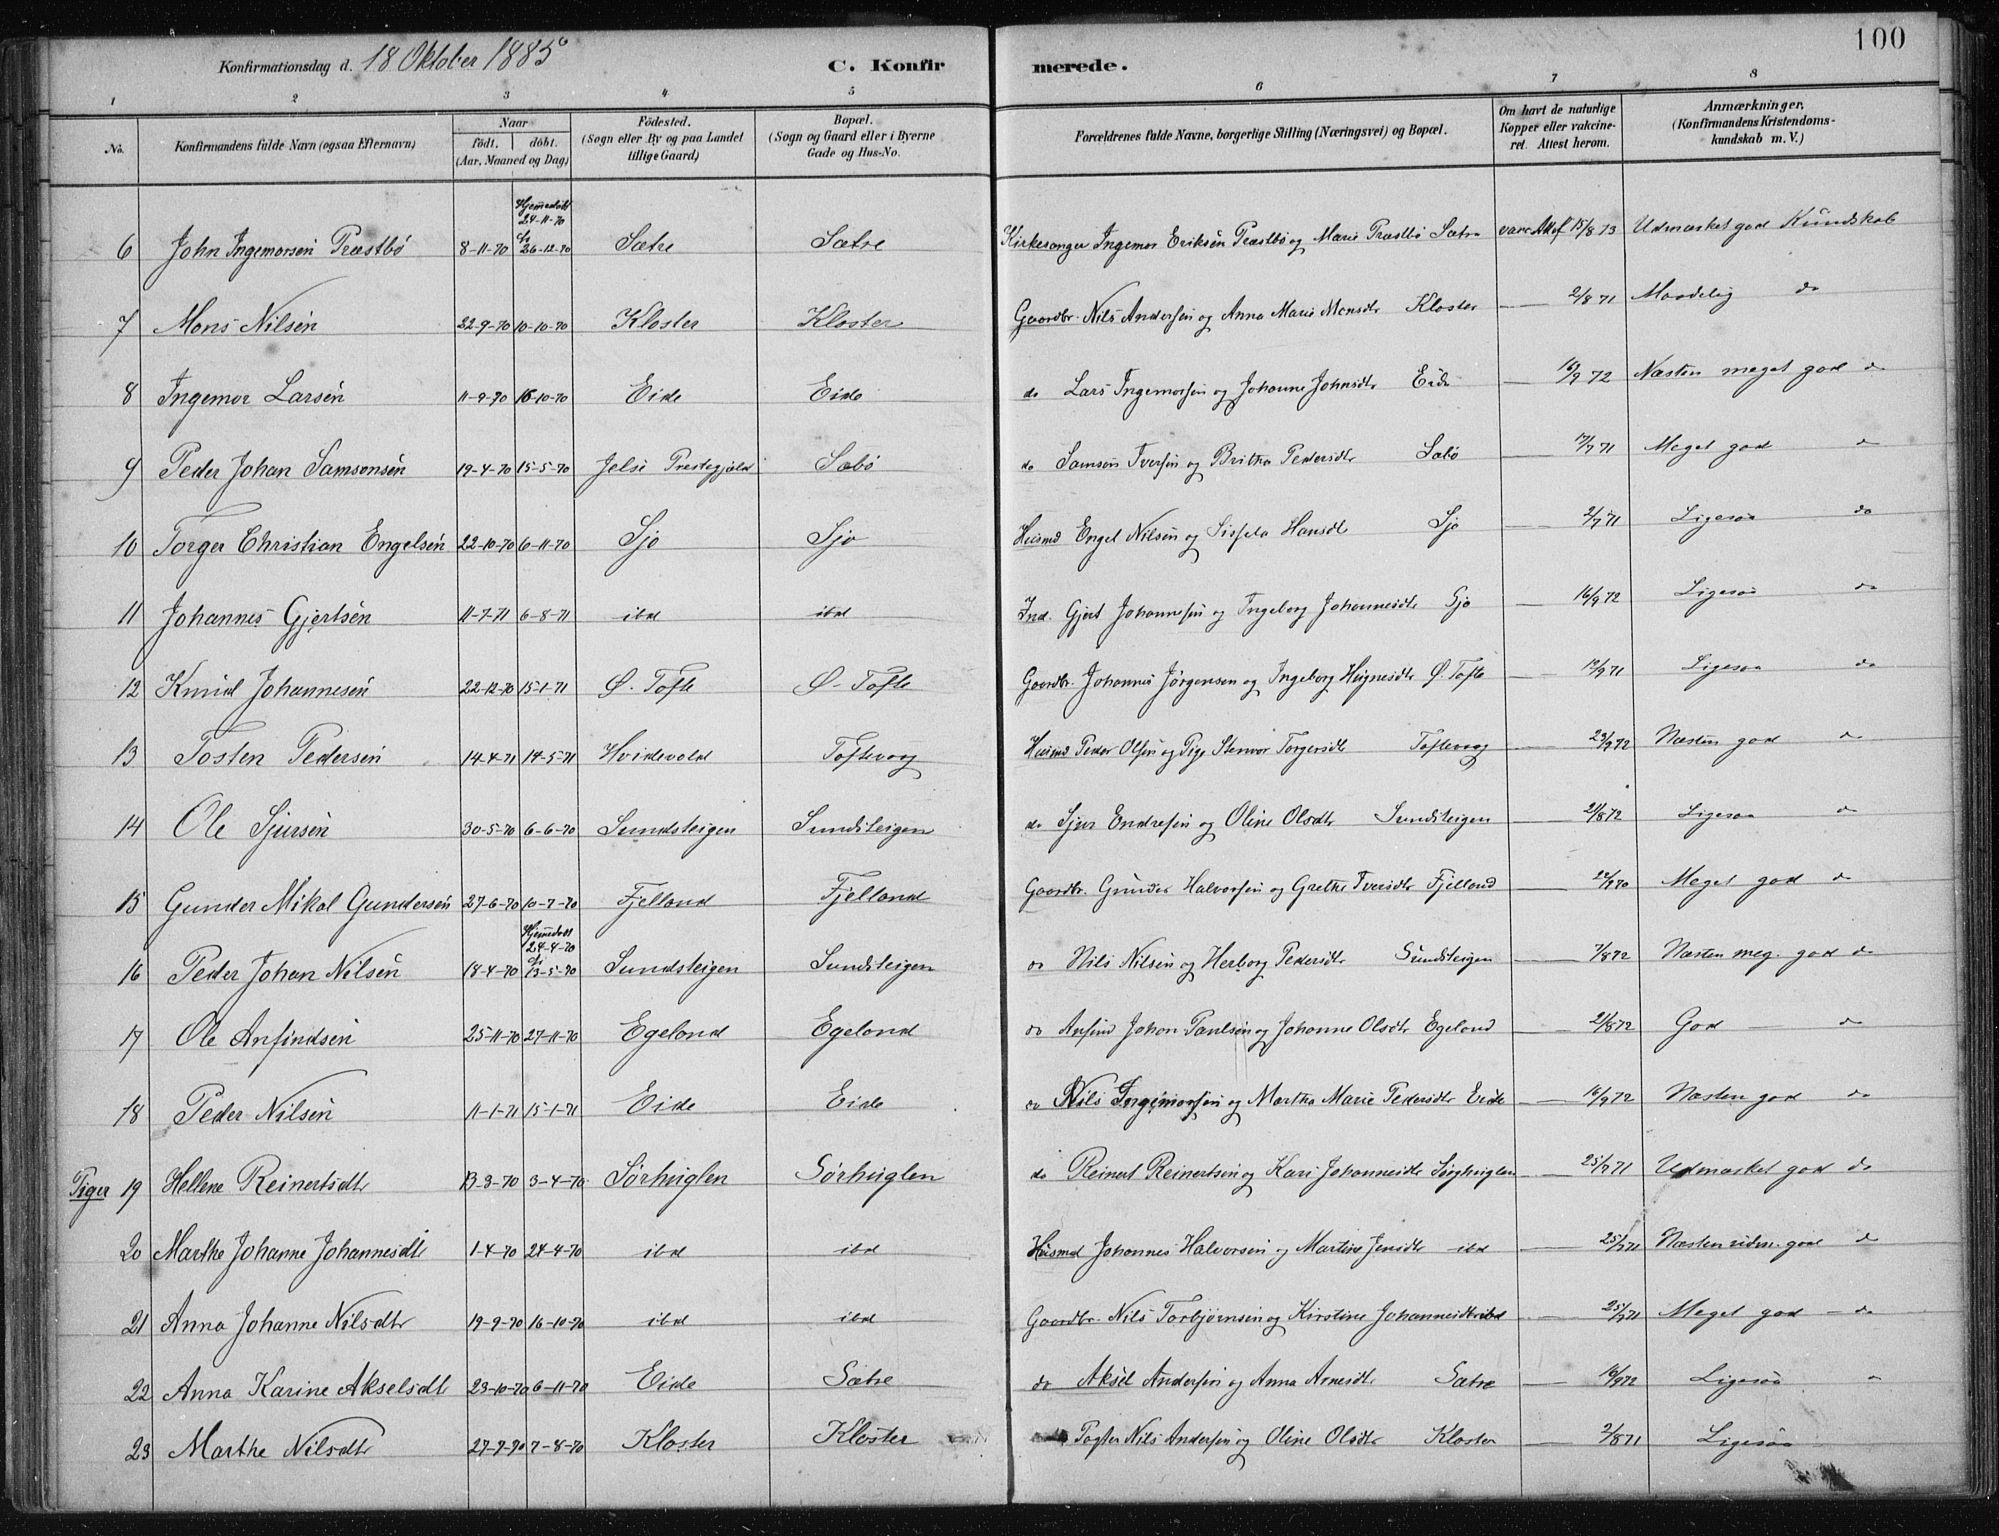 100
Konfirmationsdag d. 18 Oktober 1885 C. Konfirmerede.
1 2 3 4 5 6 7 8
No. Konfirmandens fulde Navn (ogsaa Efternavn) Naar født. døbt. (Aar, Maaned og Dag) Fødested. (Sogn eller By og paa Landet tillige Gaard) Bopæl. (Sogn og Gaard eller i Byerne Gade og Hus-No. Forældrenes fulde Navne, borgerlige Stilling (Næringsvei) og Bopæl. Om havt de naturlige Kopper eller vakcineret. Attest herom. Anmærkninger. (Konfirmandens Kristendomskundskab m. V.)
Hjemedøbt 24-11-70
6 John Ingemorsen Præstbø 8-11-70 26-12-70 Sætre Sætre Kirkesanger Ingemor Eriksen Præstbø og Marie Præstbø Sætre vacc Attest 15/8 73 Udmærket god Kundskab
7 Mons Nilsen 22-9-70 10-10-70 Kloster Kloster Gaardbr. Nils Andersen og Anna Marie Monsdtr Kloster — 2/8 71 Maadelig do
8 Ingemor Larsen 11-9-70 16-10-70 Eide Eide do Lars Ingemorsen og Johanne Johnsdtr Eide — 16/9 72 Næsten meget god do
9 Peder Johan Samsonsen 19-4-70 15-5-70 Jelse Prestegjeld Sæbø do Samson Iversen og Britha Pedersdtr Sæbø — 17/9 71 Meget god do
10 Torger Christian Engelsen 22-10-70 6-11-70 Sjo Sjo Husmd Engel Nilsen og Sissela Hansdt Sjo — 2/9 71 Ligesaa do
11 Johannes Gjertsen 11-7-71 6-8-71 ibd ibd Ind. Gjert Johannesen og Ingeborg Johannesdtr Sjo — 16/9 72 Ligesaa do
12 Knud Johannesen 22-12-70 15-1-71 Ø. Tofte Ø. Tofte Gaardbr. Johannes Jørgensen og Ingeborg Høgnesdtr Ø. Tofte — 19/9 71 Ligesaa do
13 Tosten Pedersen 14-4-71 14-5-71 Hvidevold Toftevag Husmd Peder Olsen og Pige Stenvor Torgersdt Toftevag — 23/9 72 Næsten god do
14 Ole Sjursen 30-5-70 6-6-70 Sundsteigen Sundsteigen do Sjur Endresen og Oline Olsdtr Sundsteigen — 21/8 72 Ligesaa do
15 Gunder Mikal Gundersen 27-6-70 10-7-70 Fjelland Fjelland Gaardbr. Gunder Halvorsen og Grethe Iversdtr Fjelland — 22/9 70 Meget god do
Hjemedøbt 24-4-70
16 Peder Johan Nilsen 18-4-70 13-5-70 Sundsteigen Sundsteigen do Nils Nilsen og Herborg Pedersdtr Sundsteigen — 7/8 72 Næsten meg. god do
17 Ole Anfindsen 25-11-70 27-11-70 Egeland Egeland do Anfind Johan Paulsen og Johanne Olsdtr Egeland — 21/8 72 God do
18 Peder Nilsen 11-1-71 15-1-71 Eide Eide do Nils Ingemorsen og Martha Marie Pedersdtr Eide — 16/9 72 Næsten god do
Piger 19 Hellene Reinertsdtr 13-3-70 3-4-70 Sørhuglen Sørhuglen do Reinert Reinertsen og Kari Johannesdtr Sørhuglen — 25/9 71 Udmærket god do
20 Marthe Johanne Johannesdt 1-4-70 24-4-70 ibd ibd Husmd Johannes Halvorsen og Martine Jensdtr ibd — 25/9 71 Næsten udm. god do
21 Anna Johanne Nilsdtr 19-9-70 16-10-70 ibd ibd Gaardbr. Nils Torbjørnsen og Kirstine Johannesdtr ibd — 25/9 71 Meget god do
22 Anna Karine Akselsdt 23-10-70 6-11-70 Eide Sætre do Aksel Andersen og Anna Arnesdtr Sætre — 16/9 72 Ligesaa do
23 Marthe Nilsdtr 27-7-70 7-8-70 Kloster Kloster Nils Andersen og Oline Olsdtr Kloster — 2/8 71 Ligesaa